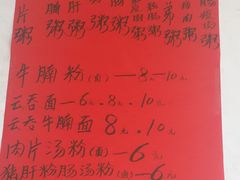 片粥 腩粥 肝粥 粥 粥 粥 粥 粥
牛腩粉(面)—8元—10元
云吞面—6元.8元.10元
云吞牛腩面 8元.10元
肉片汤粉(面)—6元
猪肝粉肠汤粉(面)—6元